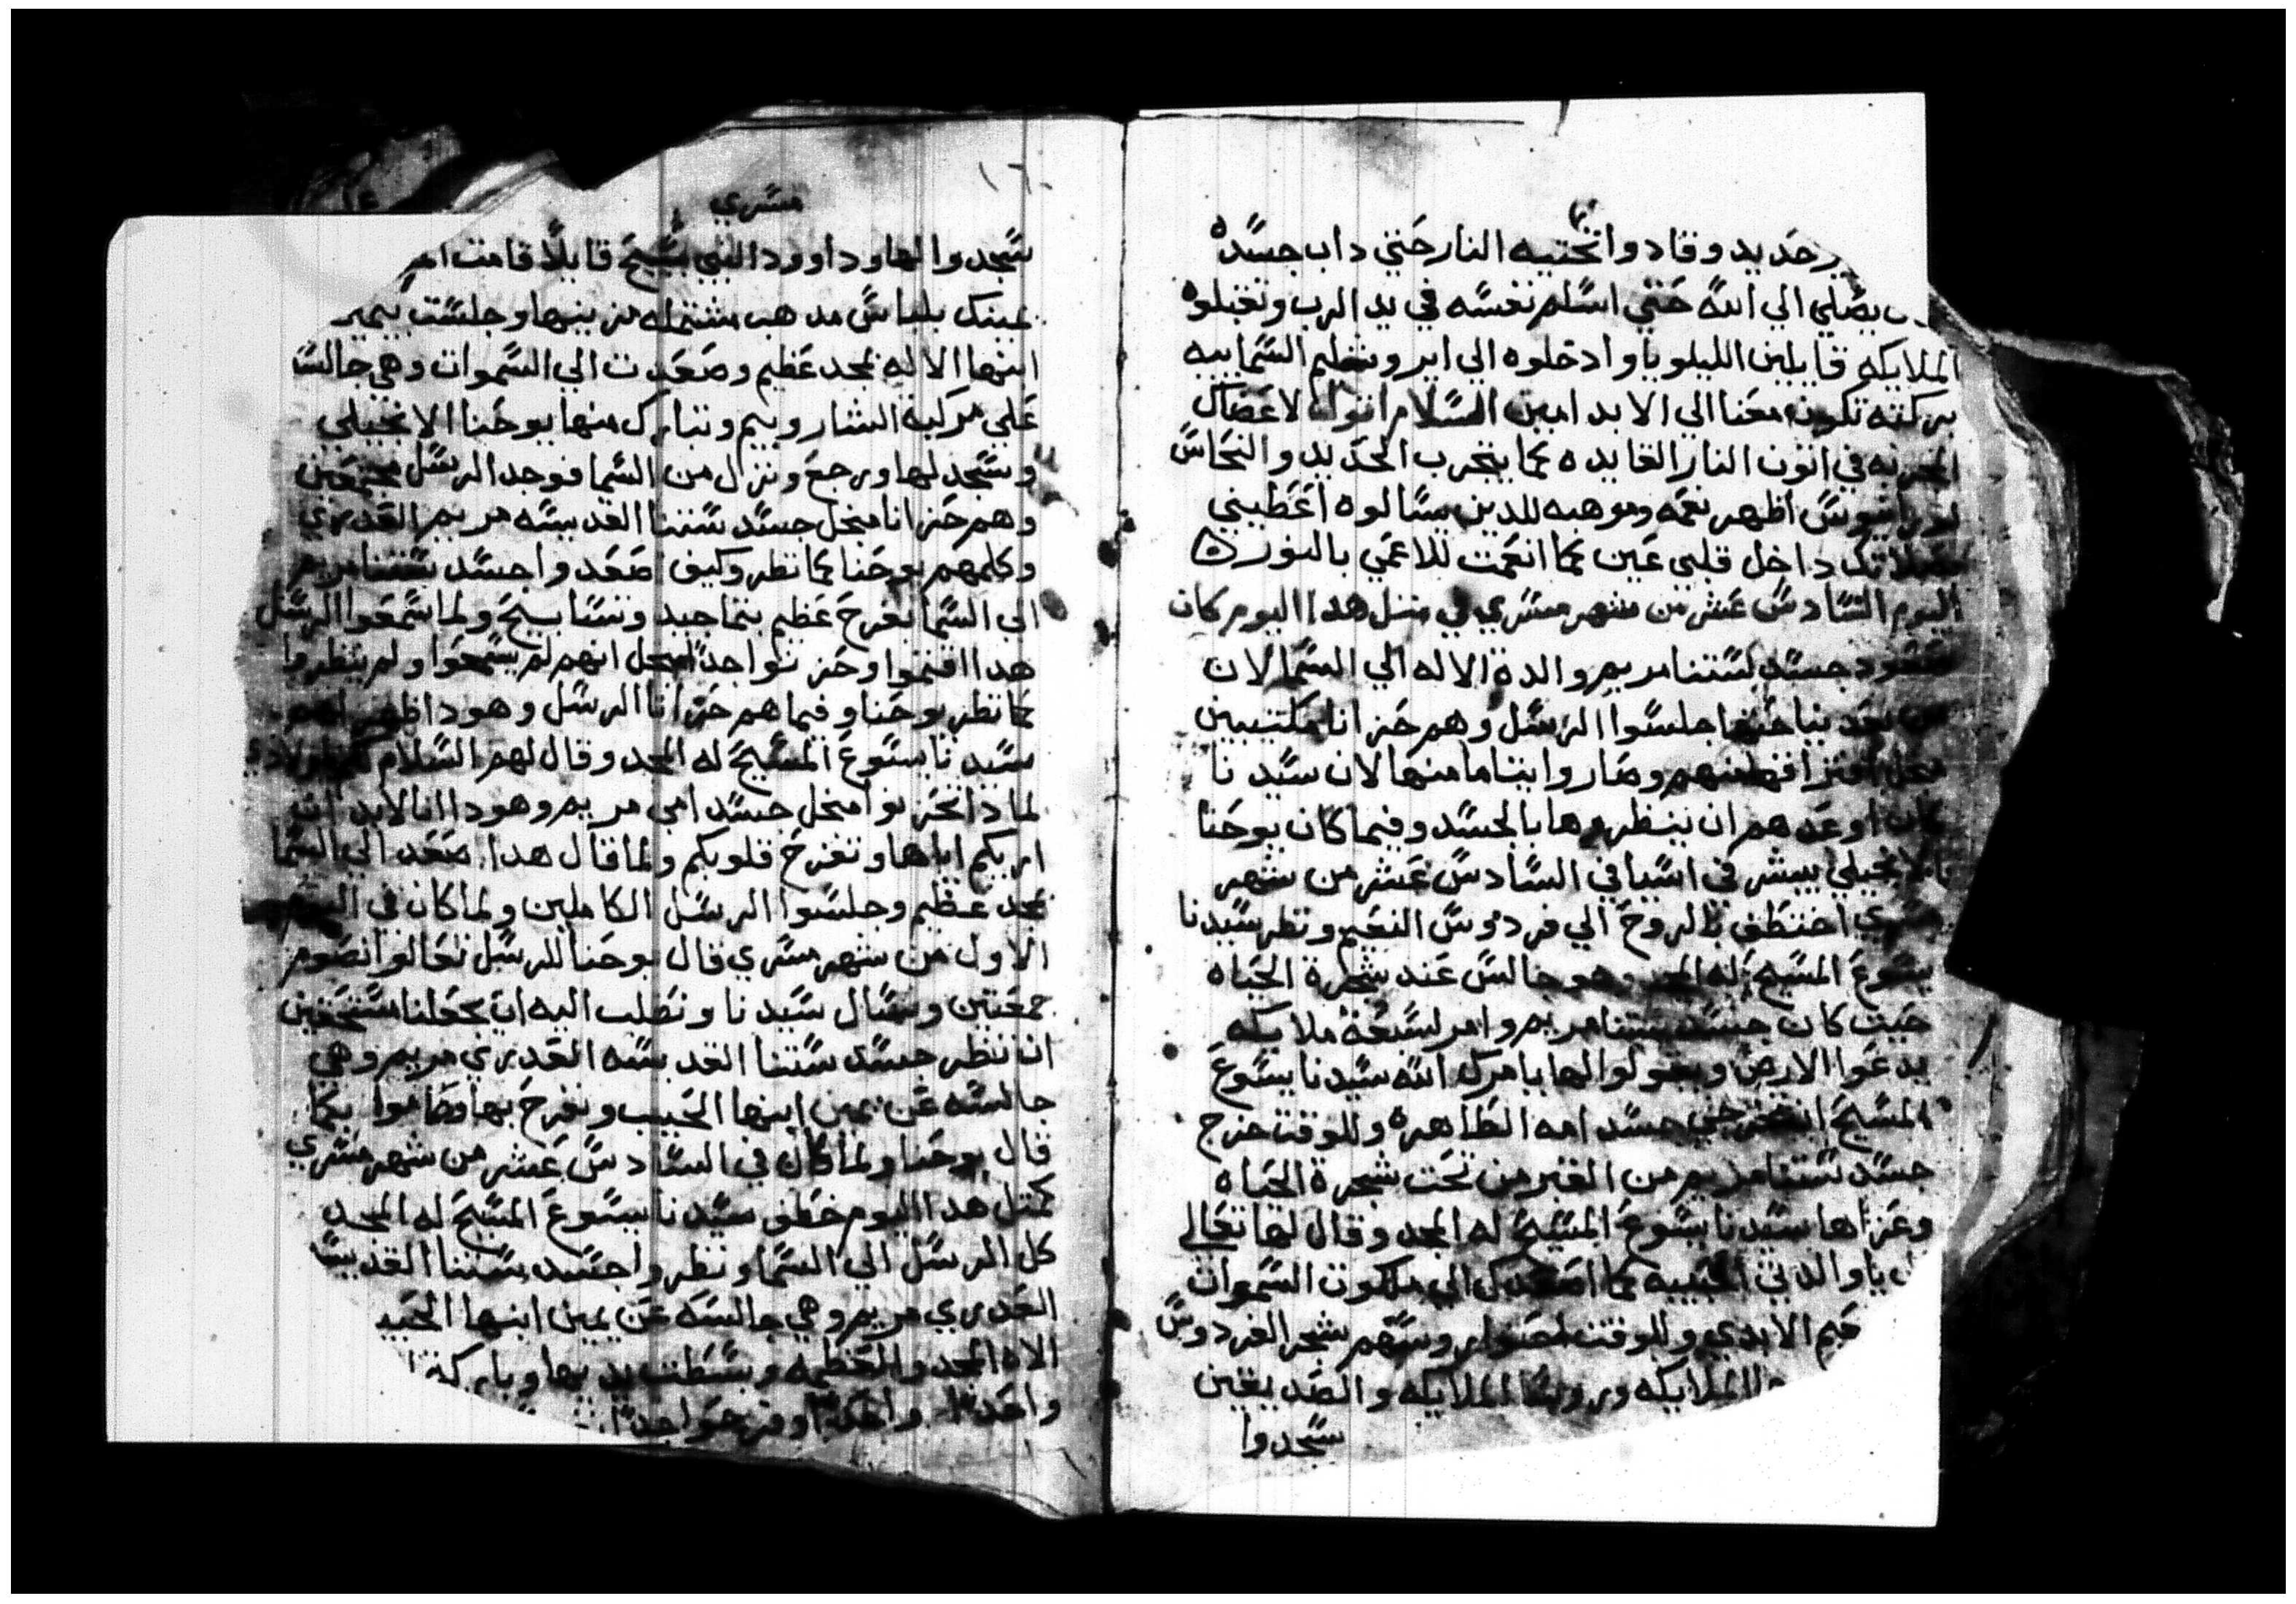 حديد وقادوا تحتيه النار حتي داب جسده
يصلي الي الله حتي اسلم نفسه في يد الرب وتقبلوه
الملايكه قايلين الليلويا وادخلوه الي ايروشليم السمايه
بركته تكون معنا الي الابد امين السلام اقول لاعضاك
المجربه في اتون النار القايده كما يتجرب الحديد والنحاس
اظهر نعمه وموهبه للدين يسالوه اعطيني
داخل قلبي عين كما انعمت للاعمي بالنور
اليوم السادس عشر من شهر مسري في متل هدا اليوم كان
صعود جسد لستنا مريم والدة الاله الي السما لان
من بعد نياحتها جلسوا الرسل وهم حزانا مكتيبين
منهم وصاروا يتاما منها لان سيدنا
كان اوعدهم ان ينظروها بالجسد وفيما كان يوحنا
الانجيلي يبشر في اسيا في السادس عشر من شهر
مسري اختطف بالروح الي فردوس النعيم ونظر سيدنا
يسوع المسيح له المجد وهو جالس عند شجرة الحياه
حيت كان جسد ستنا مريم وامر لسبعة ملايكه
يدعوا الارض ويقولوا لها يامرك الله سيدنا يسوع
المسيح ان تخرجي جسد امه الطاهره وللوقت خرج
جسد ستنا مريم من القبر من تحت شجرة الحياه
وعزاها سيدنا يسوع المسيح له المجد وقال لها تعالي
يا والدتي الحبيبه كما اصعدك الي ملكوت السموات
الابدي وللوقت شجر الفردوس
الملايكه وروسا الملايكه والصديقين
سجدوا
مسري
سجدوا لها وداوود النبي يسبح قايلا قامت
يمينك بلباس مدهب مشتمله مزينها وجلست
ابنها الاله بمجد عظيم وصعدت الي السموات وهي جالسه
علي مركبة الشاروبيم وتبارك منها يوحنا الانجيلي
وسجد لها ورجع ونزل من السما فوجد الرسل مجتمعين
وهم حزانا منجل جسد ستنا القديسه مريم العدري
وكلمهم يوحنا كما نظر وكيف صعدوا جسد ستنا مريم
الي السما بفرح عظيم بتماجيد وتسابيح ولما سمعوا الرسل
هدا اغتموا وحزنوا جدا منجل انهم لم يسمعوا ولم ينظروا
كما نظر يوحنا وفيما هم حزانا الرسل وهودا ظهر لهم
سيدنا يسوع المسيح له المجد وقال لهم السلام لكم
لمادا تحزنوا منجل جسد امي مريم وهودا انا لابد ان
اريكم اياها وتفرح قلوبكم ولما قال هدا صعد الي السما
بمجد عظيم وجلسوا الرسل الكاملين ولما كان في اليوم
الاول من شهر مسري قال يوحنا للرسل تعالوا نصوم
جمعتين ونسال سيدنا ونطلب اليه ان يجعلنا مستحقين
ان ننظر جسد ستنا القديسه العدري مريم وهي
جالسه عن يمين ابنها الحبيب ونفرح بها وصاموا كما
قال يوحنا ولما كان في السادس عشر من شهر مسري
كمتل هدا اليوم خطف سيدنا يسوع المسيح له المجد
كل الرسل الي السما ونظروا جسد ستنا القديسه
العدري مريم وهي جالسه عن يمين ابنها
الاه المجد والعظمه وبسطت يديها وباركت
واحدا واحدا وفرحوا جدا